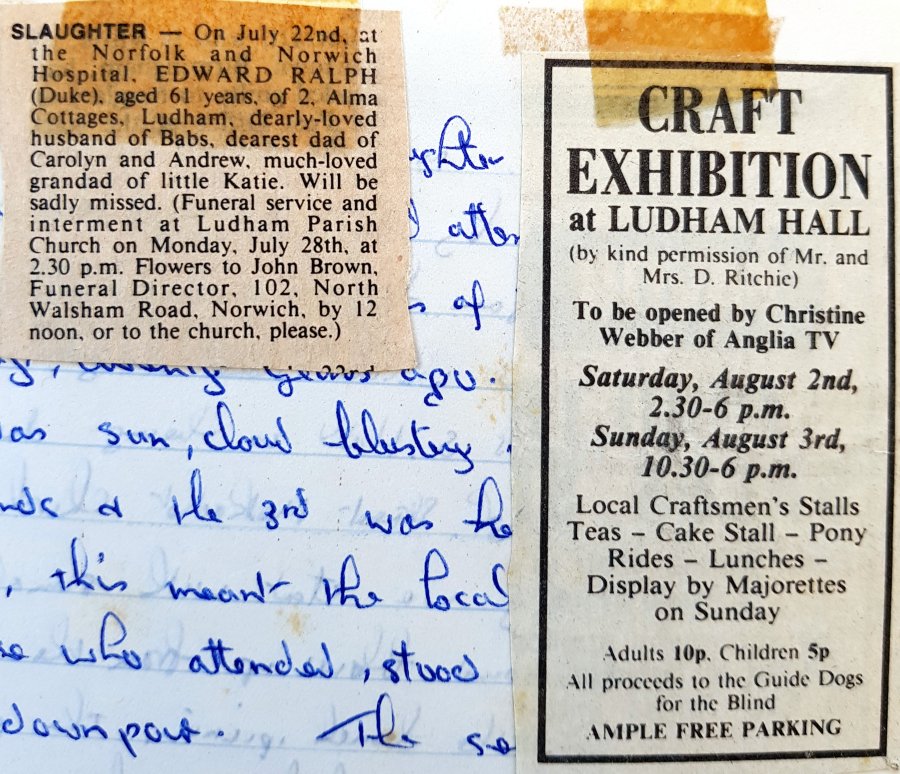 SLAUGHTER — On July 22nd, at
the Norfolk and Norwich
Hospital, EDWARD RALPH
(Duke), aged 61 years, of 2, Alma
Cottages, Ludham, dearly-loved
husband of Babs, dearest dad of
Carolyn and Andrew, much-loved
grandad of little Katie. Will be
sadly missed. (Funeral service and
interment at Ludham Parish
Church on Monday, July 28th, at
2.30 p.m. Flowers to John Brown,
Funeral Director, 102, North
Walsham Road, Norwich, by 12
noon, or to the church, please.)
of
years ago.
sun, cloud blustery
& the 3rd was
, this meant the local
who attended, stood
downpour. The
CRAFT
EXHIBITION
at LUDHAM HALL
(by kind permission of Mr. and
Mrs. D. Ritchie)
To be opened by Christine
Webber of Anglia TV
Saturday, August 2nd,
2.30-6 p.m.
Sunday, August 3rd,
10.30-6 p.m.
Local Craftsmen's Stalls
Teas – Cake Stall – Pony
Rides – Lunches –
Display by Majorettes
on Sunday
Adults 10p, Children 5p
All proceeds to the Guide Dogs
for the Blind
AMPLE FREE PARKING